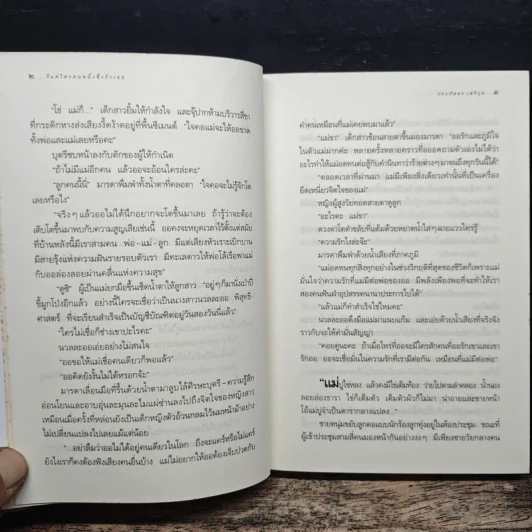 ๒ ...ก็แค่ใครคนหนึ่งซึ่งรักเธอ
"โธ่ แม่ก็..." เด็กสาวยิ้มให้กำลังใจ และจุ๊ปากห้ามบริวารสี่ขา
ที่กระดิกหางส่งเสียงงี้ดง้าดอยู่ที่พื้นซีเมนต์ "ใจคอแม่จะให้ออขาด
ทั้งพ่อและแม่เลยหรือคะ"
บุตรีซบหน้าลงกับตักของผู้ให้กำเนิด
"ถ้าไม่มีแม่อีกคน แล้วออจะอ้อนใครล่ะคะ"
"ลูกคนนี้นี่" มารดาพึมพำทั้งน้ำตาที่คลอตา "ใจคอจะไม่รู้จักโต
เลยหรือไง"
"จริงๆ แล้วออไม่ได้นึกอยากจะโตขึ้นมาเลย ถ้ารู้ว่าจะต้อง
เติบโตขึ้นมาพบกับความสูญเสียเช่นนี้ ออคงจะหยุดเวลาไว้ตั้งแต่สมัย
ที่บ้านหลังนี้มีเราสามคน พ่อ-แม่-ลูก มีแต่เสียงหัวเราะเบิกบาน
มีสายรุ้งแห่งความฝันรายรอบตัวเรา มีทะเลดาวให้พ่อได้เรือพาแม่
กับออล่องลอยผ่านคลื่นแห่งความสุข"
"ดูซิ" ผู้เป็นแม่ยกมือขึ้นเช็ดน้ำตาให้ลูกสาว "อยู่ๆ ก็มานั่งเป่าปี่
ขี้มูกโป่งอีกแล้ว อย่างนี้ใครจะเชื่อว่าเป็นนางสาวนวลละออ พิสุทธิ-
ศาสตร์ ที่จะเรียนสำเร็จเป็นบัญชีบัณฑิตอยู่วันสองวันนี่แล้ว"
"ใครไม่เชื่อก็ช่างเขาปะไรคะ"
นวลละออเอ่ยอย่างไม่สนใจ
"ออขอให้แม่เชื่อคนเดียวก็พอแล้ว"
"ออคิดยังงั้นไม่ได้หรอกจ้ะ"
มารดาเลื่อนมือที่รื้นด้วยน้ำตามาลูบไล้ศีรษะบุตรี - ความรู้สึก
อ่อนโยนและอบอุ่นละมุนละไมแผ่ซ่านลงไปถึงจิตใจของหญิงสาว
เหมือนเมื่อครั้งที่หล่อนยังเป็นเด็กหญิงตัวอ้วนกลมไว้ผมหน้าม้าอย่าง
ไม่เปลี่ยนแปลงไปเลยแม้แต่น้อย
"อย่าลืมว่าออไม่ได้อยู่คนเดียวในโลก ถึงจะแคร์หรือไม่แคร์
ยังไงเราก็คงต้องฟังเสียงคนอื่นบ้าง แม่ไม่อยากให้ออต้องเจ็บปวดกับ
๓
คำคนเหมือนที่แม่เคยพบมาแล้ว"
"แม่ขา" เด็กสาวช้อนสายตาขึ้นมองมารดา "ออรักและภูมิใจ
ในตัวแม่มากค่ะ หลายครั้งหลายคราวที่ออถามตัวเองไม่ได้ว่า
อะไรทำให้แม่อดทนต่อสู้กับคำนินทาว่าร้ายต่างๆ มาจนถึงทุกวันนี้ได้"
"ตลอดเวลาที่ผ่านมา แม่มีเพียงสิ่งเดียวเท่านั้นที่เป็นเครื่อง
ยึดเหนี่ยวจิตใจของแม่"
หญิงผู้สูงวัยทอดสายตาดูลูก
"อะไรคะ แม่ขา"
ดวงตาโตดำขลับที่แต้มด้วยหยาดน้ำใสๆ ฉายแววใคร่รู้
"ความรักไงล่ะจ๊ะ"
มารดาพึมพำด้วยน้ำเสียงที่ภาคภูมิ
"แม่อดทนทุกสิ่งทุกอย่างในช่วงวิกฤติที่สุดของชีวิตก็เพราะแม่
มั่นใจว่าความรักที่แม่มีต่อพ่อของออ มีพลังเพียงพอที่จะทำให้เรา
สองคนฟันฝ่าอุปสรรคนานาประการไปได้"
"แล้วแม่ก็ทำสำเร็จใช่ไหมคะ"
นวลละออดึงมือแม่มาแนบแก้ม และเอ่ยด้วยน้ำเสียงที่จริงจัง
ราวกับจะให้คำมั่นสัญญา
"คอยดูนะคะ ถ้าเมื่อไหร่ที่ออจะมีใครสักคนที่ออรักเขาและเขา
รักออ ออจะเชื่อมั่นในความรักที่เรามีต่อกัน เหมือนที่แม่มีต่อพ่อ"
ชายหนุ่มขยับลูกคอแบบนักร้องลูกทุ่งอยู่ในห้องประชุม ขณะที่
ผู้เข้าประชุมสามสี่คนมองหน้ากันอย่างงงๆ มีเพียงชายวัยกลางคน